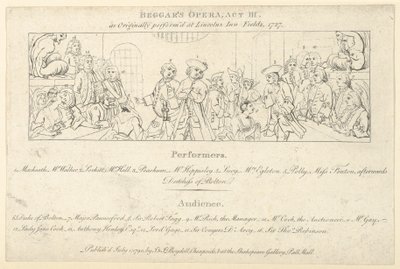 BEGGAR'S OPERA, ACT III.
as Originally perform'd at Lincolns Inn Fields, 1727.
Performers.
1. Macheath, Mr. Walker 2. Lockit, Mr. Hall 3. Peachum, Mr. Hippisley 4. Lucy, Mrs. Egleton 5. Polly, Miss Fenton, afterwards
Dutchess of Bolton.
Audience.
6. Duke of Bolton. 7. Major Pauncford. 8. Sir Robert Fagg. 9. Mr. Rich, the Manager. 10. Mr. Cock, the Auctioneer. 11. Mr. Gay.
12. Lady Jane Cook. 13. Anthony Henley Esqr. 14. Lord Gage. 15. Sir Conyers D'Arcy. 16. Sir Thos. Robinson.
Publish'd July 1, 1790, by J. & J. Boydell, Cheapside, & at the Shakspeare Gallery, Pall Mall.